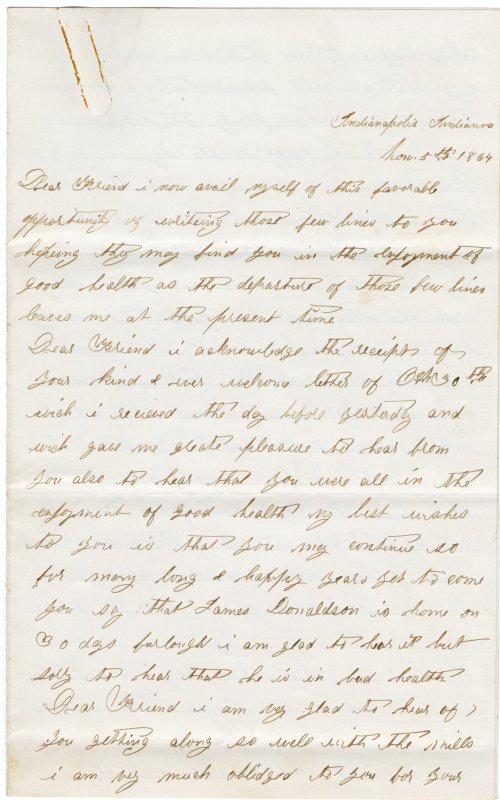 Indianapolis Indiana
Nov. 5th 1864
Dear Friend i now avail myself of this favorable
opportunity of writeing those few lines to you
hopeing they may find you in the enjoyment of
good health as the departure of those few lines
leaves me at the present time
Dear Friend i acknowledge the receipt of
your kind & ever welcome letter of Oct 30th
wich i recieved the day before yesterday and
wich gave me greate pleasure to hear from
you also to hear that you were all in the
enjoyment of good health my best wishes
to you is that you may continue so
for many long & happy years yet to come
you say that James Donaldson is home on
30 days furlough i am glad to hear it but
sory to hear that he is in bad health
Dear Friend i am very glad to hear of
you getting along so well with the
i am very much obliged to you for your